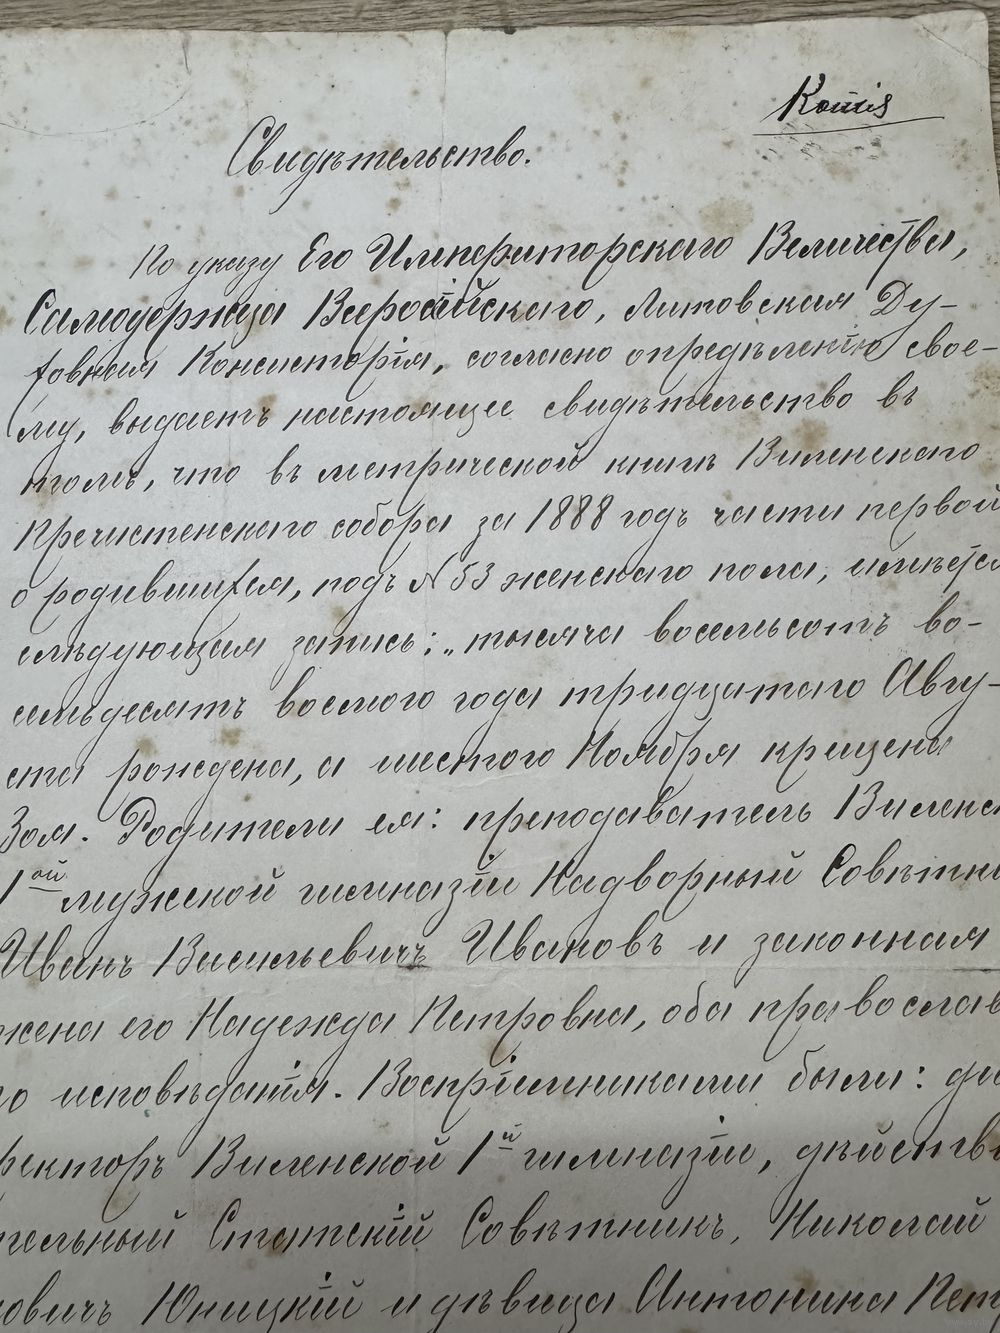 Копія
Свидѣтельство.
По указу Его Императорскаго Величества,
Самодержца Всероссійскаго, Литовская Ду-
ховная Консисторія, согласно опредѣленію свое-
му, выдаетъ настоящее свидѣтельство въ
томъ, что въ метрической книгѣ Виленскаго
Пречистенскаго собора за 1888 годъ части первой
о родившихся, подъ № 53 женскаго пола, имѣется
слѣдующая запись: „тысяча восемьсотъ во-
семьдесятъ восмого года тридцатаго Авгу-
ста рождена, а шестого Ноября крещена
Зоя. Родители ея: преподаватель Виленс
1ой мужской гимназіи Надворный Совѣтни
Иванъ Васильевичъ Ивановъ и законная
жена его Надежда Петровна, оба православ
го исповѣданія. Воспріемниками были: ди
ректоръ Виленской 1й гимназіи, дѣйстви
тельный Статскій Совѣтникъ, Николай
овичъ Юницкій и дѣвица Антонина Пет